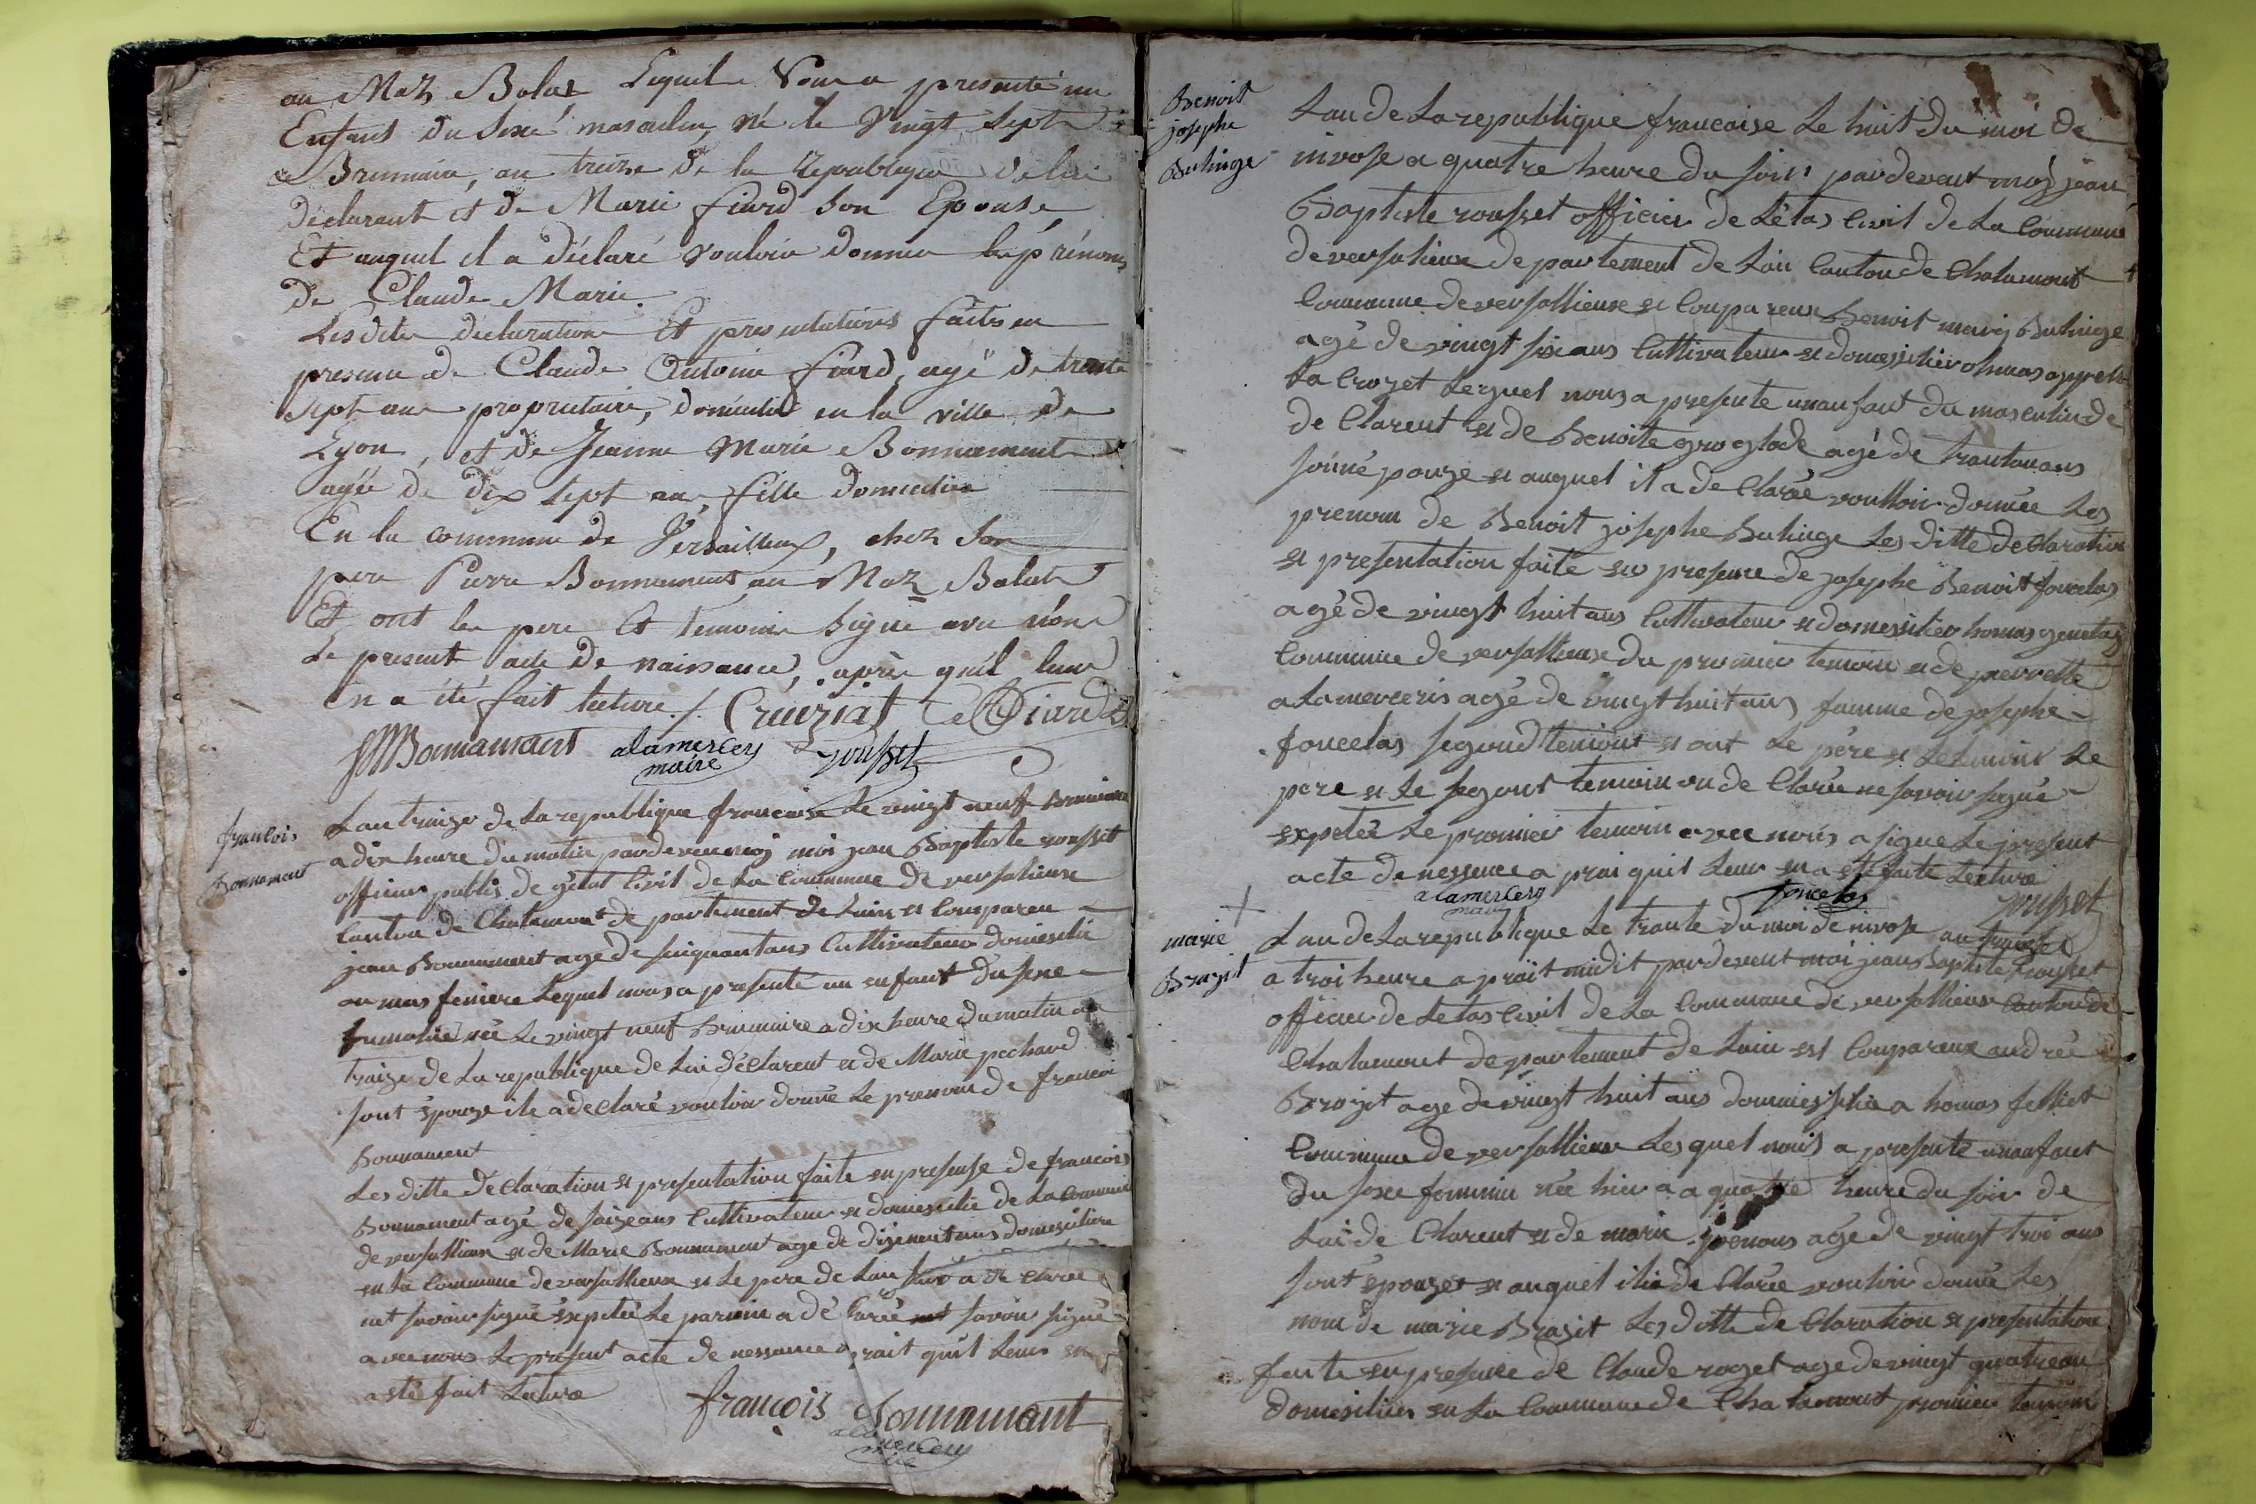 au Maz Balat Lequel Nous a presenté un
Enfant du Sexe masculin, né le Vingt Sept
Brumaire, an treize de la Republique de lui
Déclarant et de Marie fiard Son Epouse
Et auquel il a déclaré vouloir donner les prénoms
de Claude Marie
Lesdites declarations Et presentations faites en
presence de Claude Antoine fiard, agé de trente
Sept ans proprietaire, domicilié en la ville de
Lyon, et de Jeanne Marie Bonnament
agée de dix Sept ans fille domiciliée
En la commune de Versailleux, chez Son
pere Pierre Bonnament, au Maz Balat
Et ont les pere Et temoins Signé avec nous
Le present acte de naissance, après qu'il leur
En a été fait lecture /. Cruiziat C A fiard
JMBonnamant alamercery rousset
maire
francois
Bonnament
Lan traize de La republique francaise Le vingt neuf brumaire
a dix heure du matin pardevent moj moi jean Baptiste rousset
officier public de létat Civil de La Commune de versalieux
Canton de Chalamont de partement de Lain et Compareu
jean Bonnament age de sinquantans Cultivateur domesilié
au mas feniere Lequel nous a presenté un enfant du sexe
née Le vingt neuf brumaire a dix heure du matin an
traize de La republique de Lui déClarent et de Marie pechard
sont épouze ile adeclaré vouloir donné Le prenom de francoi
Bonnament
Les ditte deClaration et presentation faite en presense de francois
Bonnament agé de saize ans Cultivateur et domesilié de La Commune
de versallieux et de Marie Bonnament age de dizneuf ans domesiliere
en La Commune de versallieux et Le pere de Lan a de Clarée
savoir signé expeteé Le parain a dé Claré savoir signé
avec nous Le present acte de nessance aprait quil Leur en
a eté fait Lecture
françois Bonnamant
alamercery
maire
Benoit
josephe
Buhinge
Lan de La republique francaise Le huit du moi de
nivose a quatre heure du soir pardevent moj jean
Baptiste rousset officier de Létas Civil de La Commune
de versalieux de partement de Lain Canton de Chalamont
Commune de versallieux et Compareux Benoit marij Buhinge
agé de vingt six ans Cultivateur et domessilier ohmas appelé
La Crozet Lequel nous a presente unanfant du masculin de
de Clarent et de Benoite groslade agé de trantanans
sonné pouze et auquel il a de Clarée voulloir donnée Les
prenom de Benoit josephe Buhinge Les ditte deClaration
et presentation faite en presence de josephe Benoit foucelas
agé de vingt huit ans Cultivateur et domessilier homas genetaij
Commune de versallieux du promier temoin et de pierrette
alamerceris agé de vingt huit ans famme de josephe
foucelas segond temoint et ont Le père et Letemoint Le
pere et Le segont temoin on de Clarée ne savoir signé
expeteé Le promier temoin avec nous a signe Le present
acte de nessence a prai quil Leur en a eté faite Lecture
alamercery foucelas rousset
maire
marie
Brazit
Lan de La republique Le trante du moi de nivose an traize
a troi heure a prait midit pardevent moi jean Baptiste rousset
officier de Letas Civil de La Commune de versallieux Canton de
Chalamont de partement de Lain est Compareux andrée
Brazit age de vingt huit ans domiessilier a homas felliet
Commune de versallieux Les quel nous a presente unanfant
du sexe feminin née hier a a quatre heure du soir de
Lui de Clarent et de marie agé de vingt troi ans
sont épouzer et auquel il a de Clarée vouloir donnée Les
nom de marie Brazit Les ditte de Claration et presentation
faite en presence de Claude roget age de vingt quatre an
domesilier en La Commune de Chalamont promier temoin